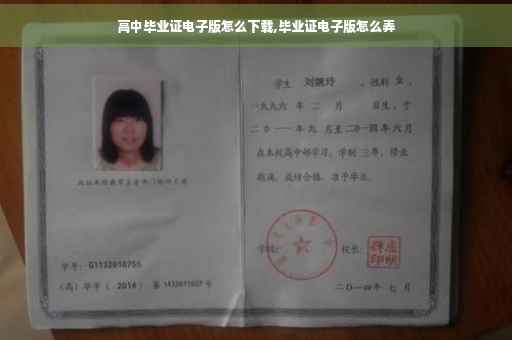 高中毕业证电子版怎么下载,毕业证电子版怎么弄
学生 刘婉玲 ，性别 女 ，
一九九六 年 二 月 日生，于
二〇一一 年 九 月至二〇一四 年 六 月
在本校高中部学习，学制 三 年，修业
期满，成绩合格，准予毕业。
学校： 校长：
二〇一四年 七 月
学号：G1132010755
（高）毕字（ 2014 ）第 1432011027 号